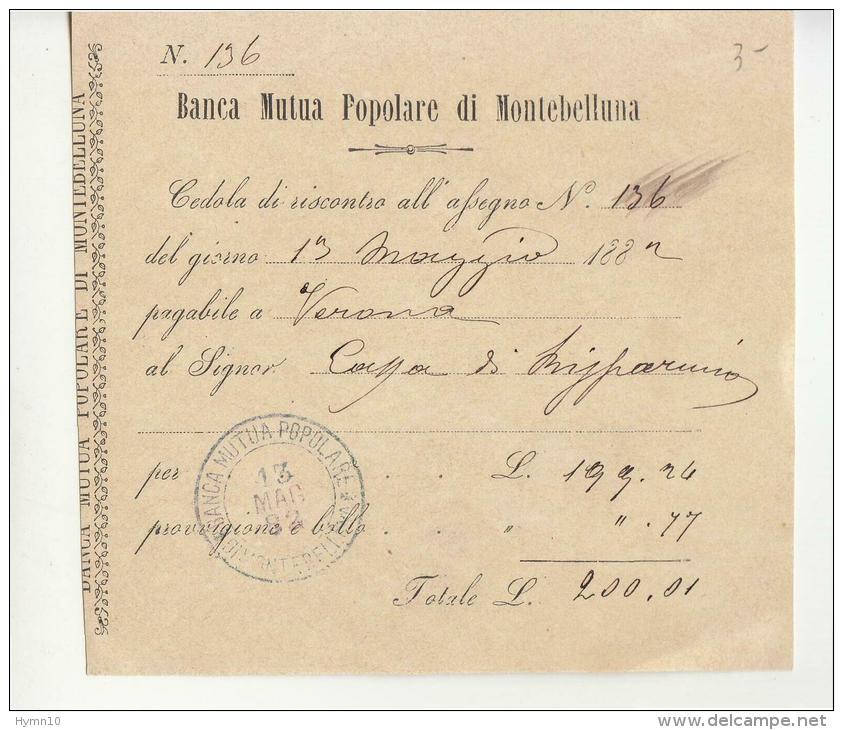 N. 136
3-
Banca Mutua Popolare di Montebelluna
Cedola di riscontro all'assegno N.º 136
del giorno 13 Maggio 1882
pagabile a Verona
al Signor Cassa di Risparmio
per . . L. 199.24
provvigione e bollo . . " " . 77
Totale L. 200.01
BANCA MUTUA POPOLARE
DI MONTEBELLUNA
13
MAG
82
BANCA MUTUA POPOLARE DI MONTEBELLUNA
Hymn10
www.delcampe.net